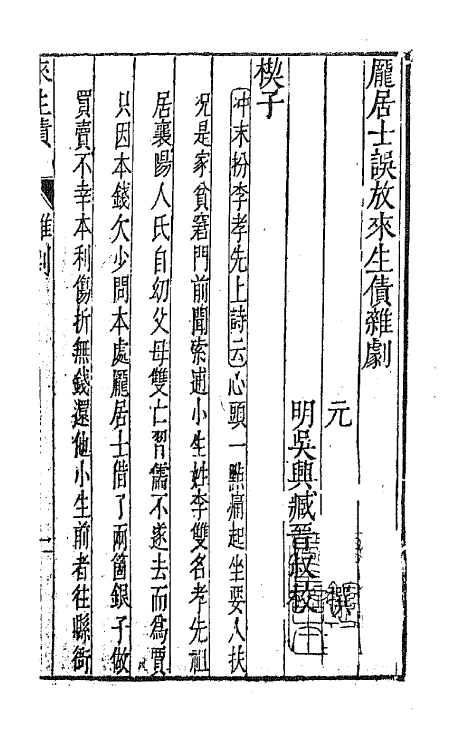 龐居士誤放來生債雜劇
元　撰
明吳興臧晉叔校
楔子
冲末扮李孝先上詩云心頭一點痛起坐要人扶
况是家貧窘門前聞索逋小生姓李雙名孝先祖
居襄陽人氏自幼父母雙亡習儒不遂去而爲賈
只因本錢欠少問本處龐居士借了兩箇銀子做
買賣不幸本利傷折無錢還他小生前者往縣衙
來生債　雜劇　一